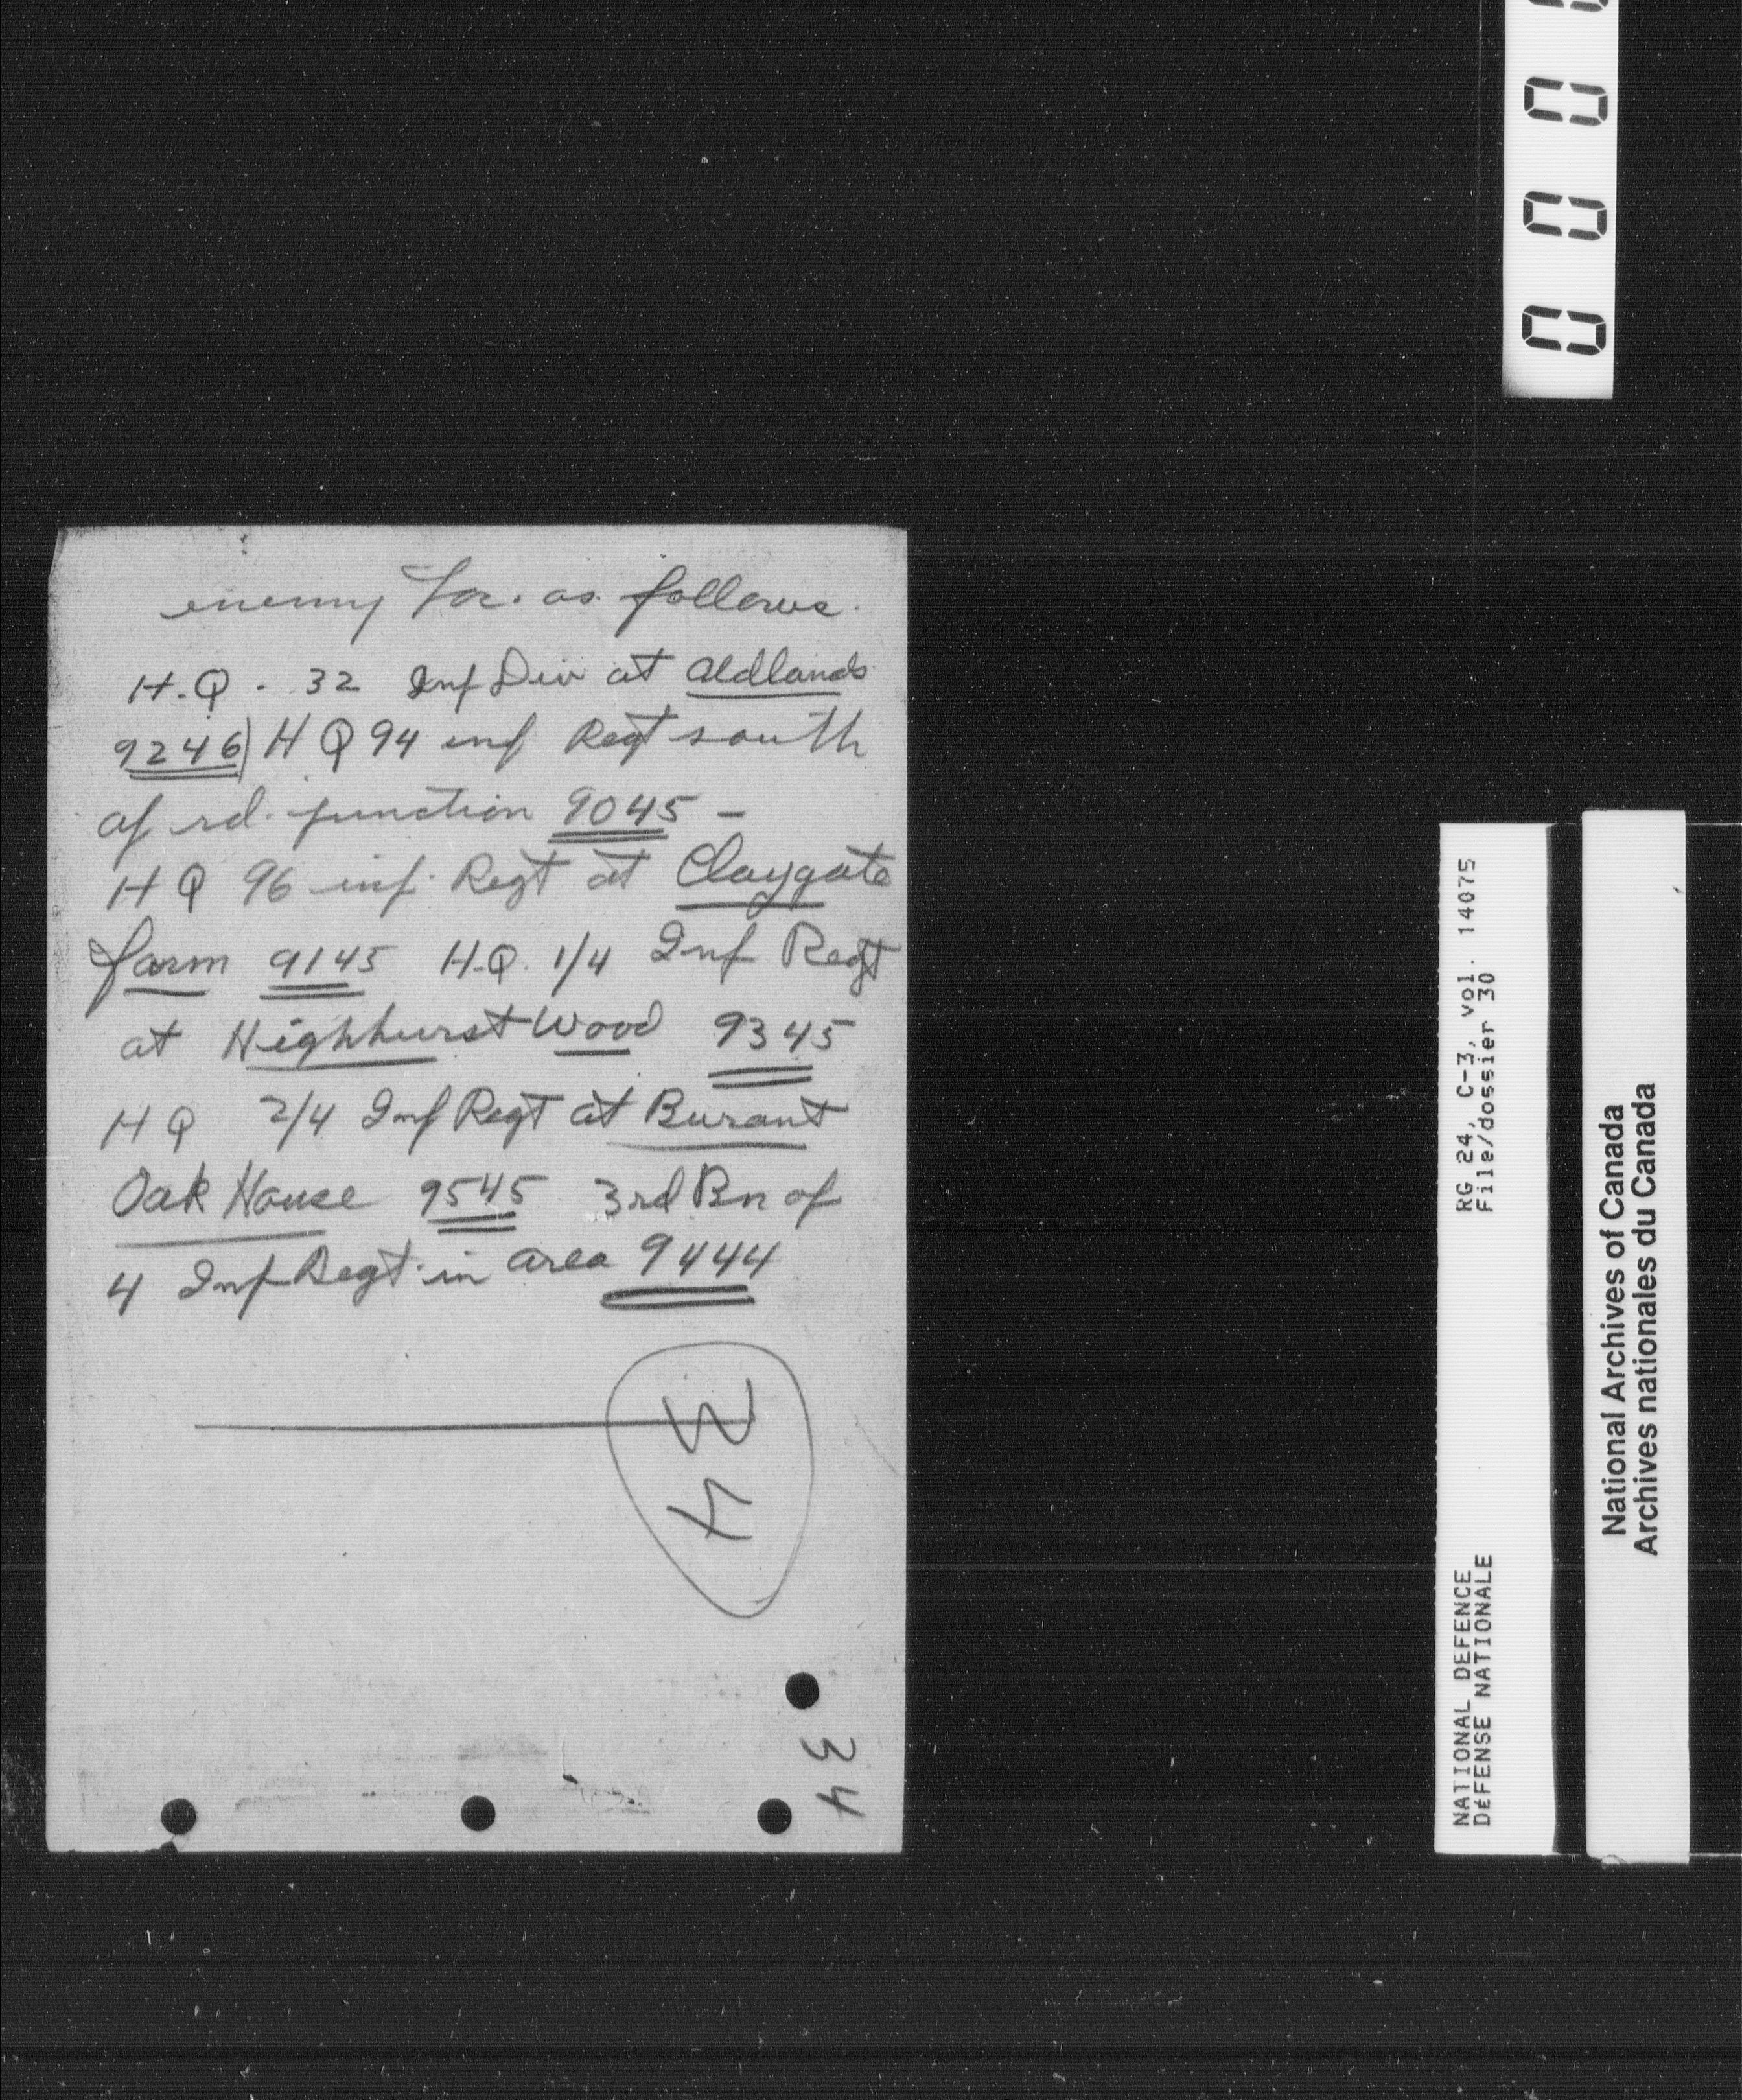 enemy loc. as follows.
H.Q. 32 Inf Div at Oldlands
9246) H Q 94 inf Regt south
of rd. junction 9045 -
H Q 96 inf. Regt at Claygate
farm 9145 H.Q. 1/4 Inf Regt
at Highhurst Wood 9345
H Q 2/4 Inf Regt at Burant
Oak House 9545 3rd Bn of
4 Inf Regt in area 9444
34
34
0 0 0
RG 24, C-3, vol. 14075
File/dossier 30
NATIONAL DEFENCE
DÉFENSE NATIONALE
National Archives of Canada
Archives nationales du Canada